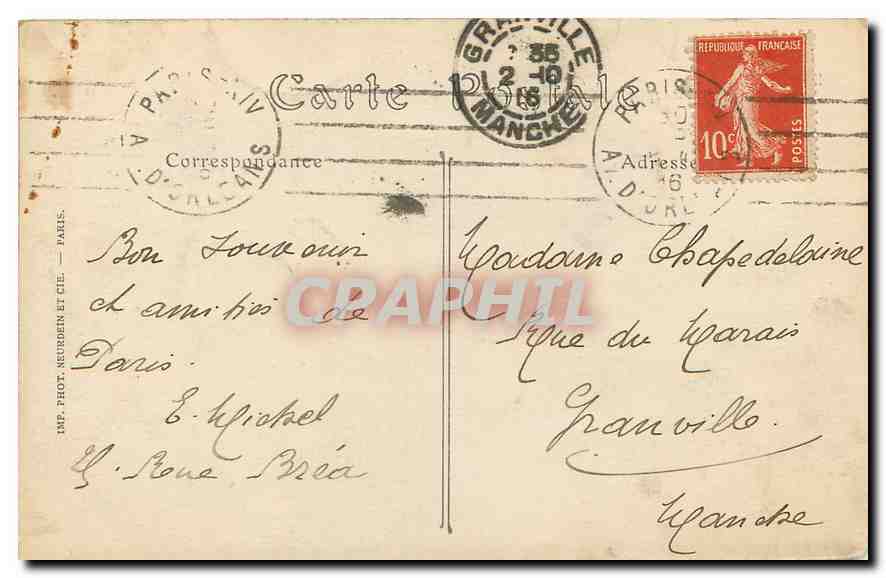 GRANVILLE
35
2 -10
16
MANCHE
PARIS XIV
A D'ORLEANS
Carte Postale
PARIS
30
16
AV. D'ORLE
REPUBLIQUE FRANÇAISE
10c
POSTES
Correspondance
Adresse
Bon souvenir
et amitiés de
Paris.
E. Michel
Rue Bréa
Madame Chapedelaine
Rue du Marais
Granville.
Manche
CPAPHIL
IMP. PHOT. NEURDEIN ET CIE. — PARIS.